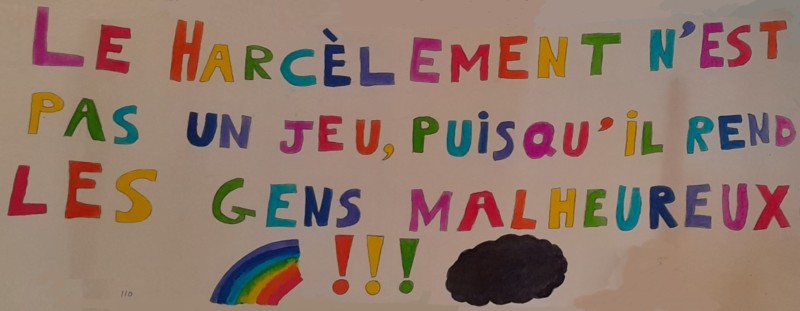 LE HARCÈLEMENT N'EST
PAS UN JEU, PUiSQU'iL REND
LES GENS MALHEUREUX
!!!